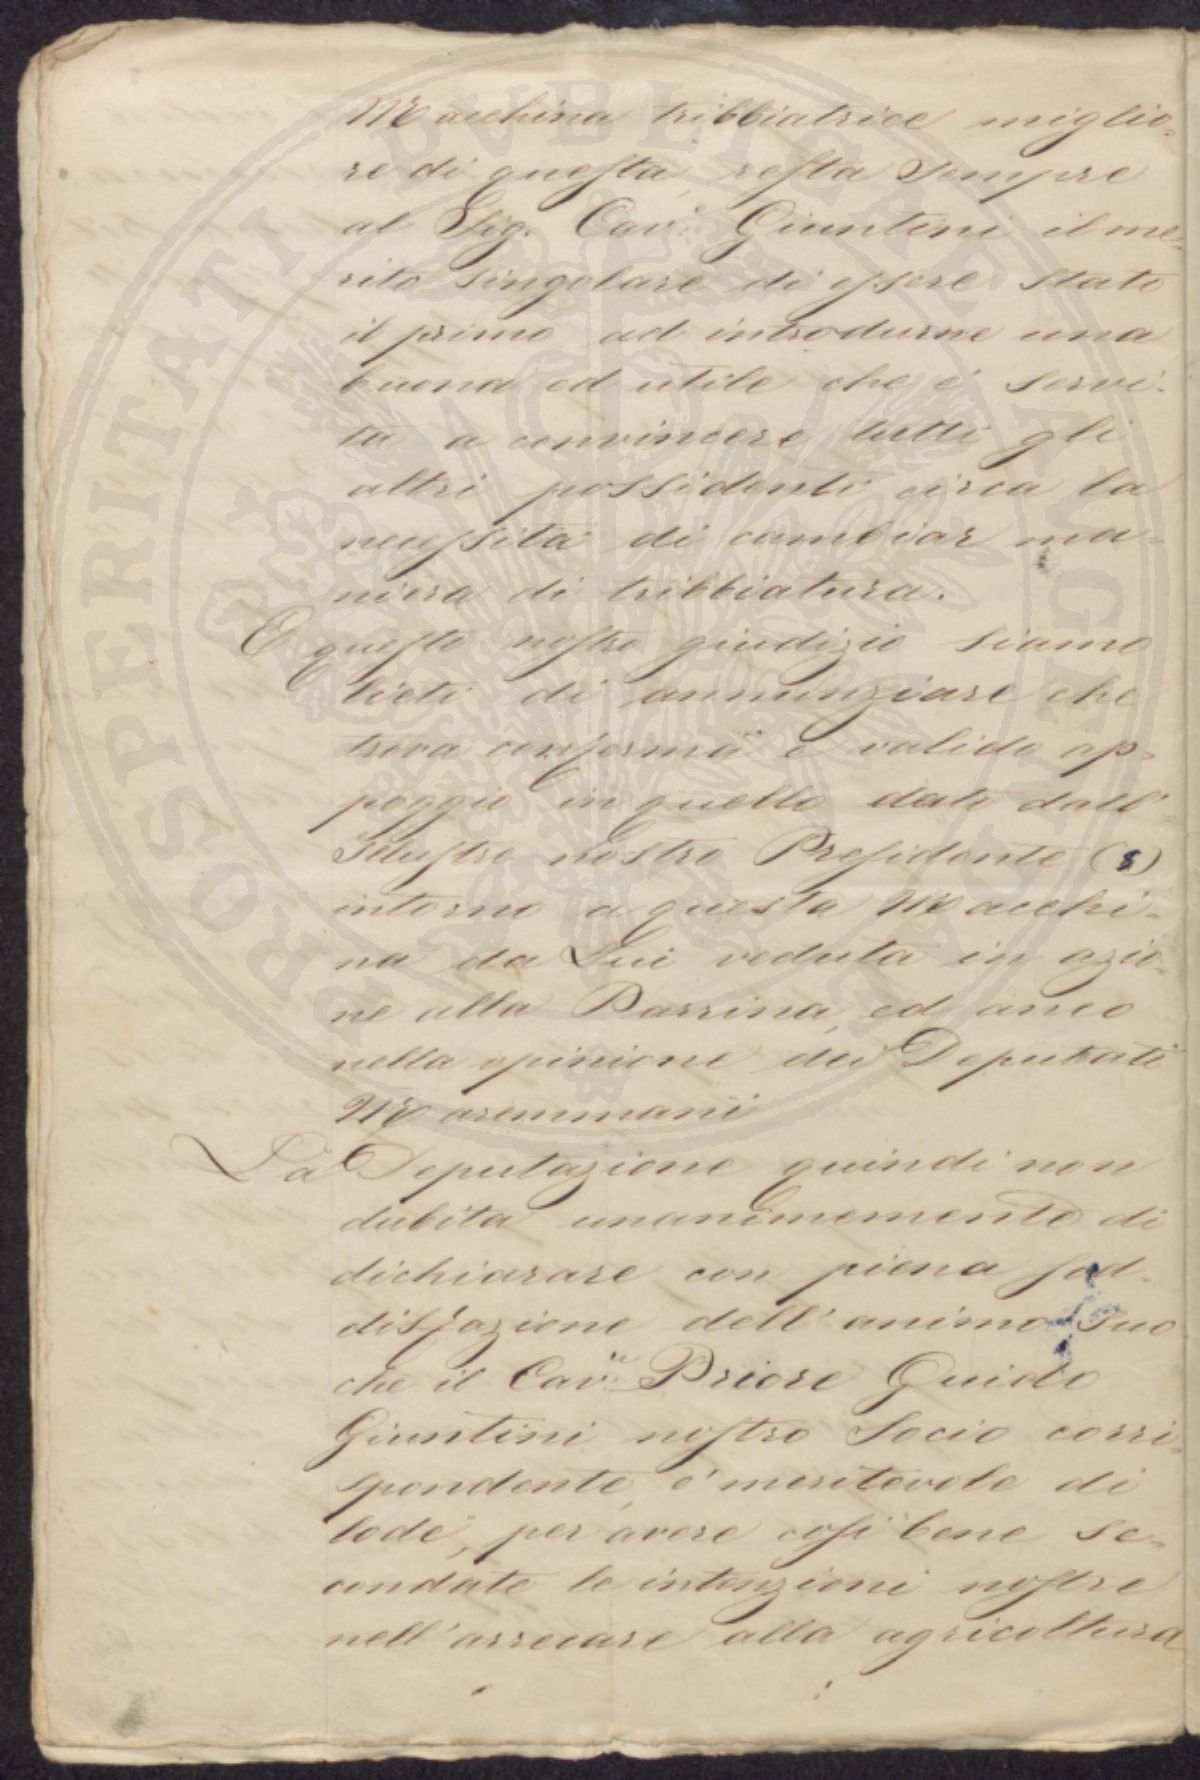 Macchina tribbiatrice miglio-
re di questa, resta sempre
al Sig. Cav.e Giuntini il me-
rito singolare di essere stato
il primo ad introdurne una
buona ed utile che è servi-
ta a convincere tutti gli
altri possidenti circa la
necessità di cambiar ma-
niera di tribbiatura.
E questo nostro giudizio siamo
lieti di annunziare che
trova conferma e valido ap-
poggio in quello dato dall'
Illustre nostro Presidente (8)
intorno a questa Macchi-
na da Lui veduta in azio-
ne alla Parrina, ed anco
nella opinione dei Deputati
Maremmani
La Deputazione quindi non
dubita unanimemente di
dichiarare con piena sod-
disfazione dell'animo suo
che il Cav.re Priore Guido
Giuntini nostro Socio corri-
spondente, è meritevole di
lode, per avere così bene se-
condate le intenzioni nostre
nell'arrecare alla agricoltura
PROSPERITATI PUBLICAE AUGENDAE